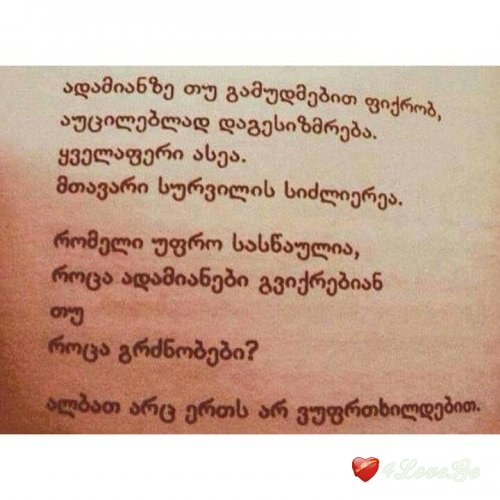 ადამიანზე თუ გამუდმებით ფიქრობ,
აუცილებლად დაგესიზმრება.
ყველაფერი ასეა.
მთავარი სურვილის სიძლიერეა.
რომელი უფრო სასწაულია,
როცა ადამიანები გვიქრებიან
თუ
როცა გრძნობები?
ალბათ არც ერთს არ ვუფრთხილდებით.
4Love.Ge